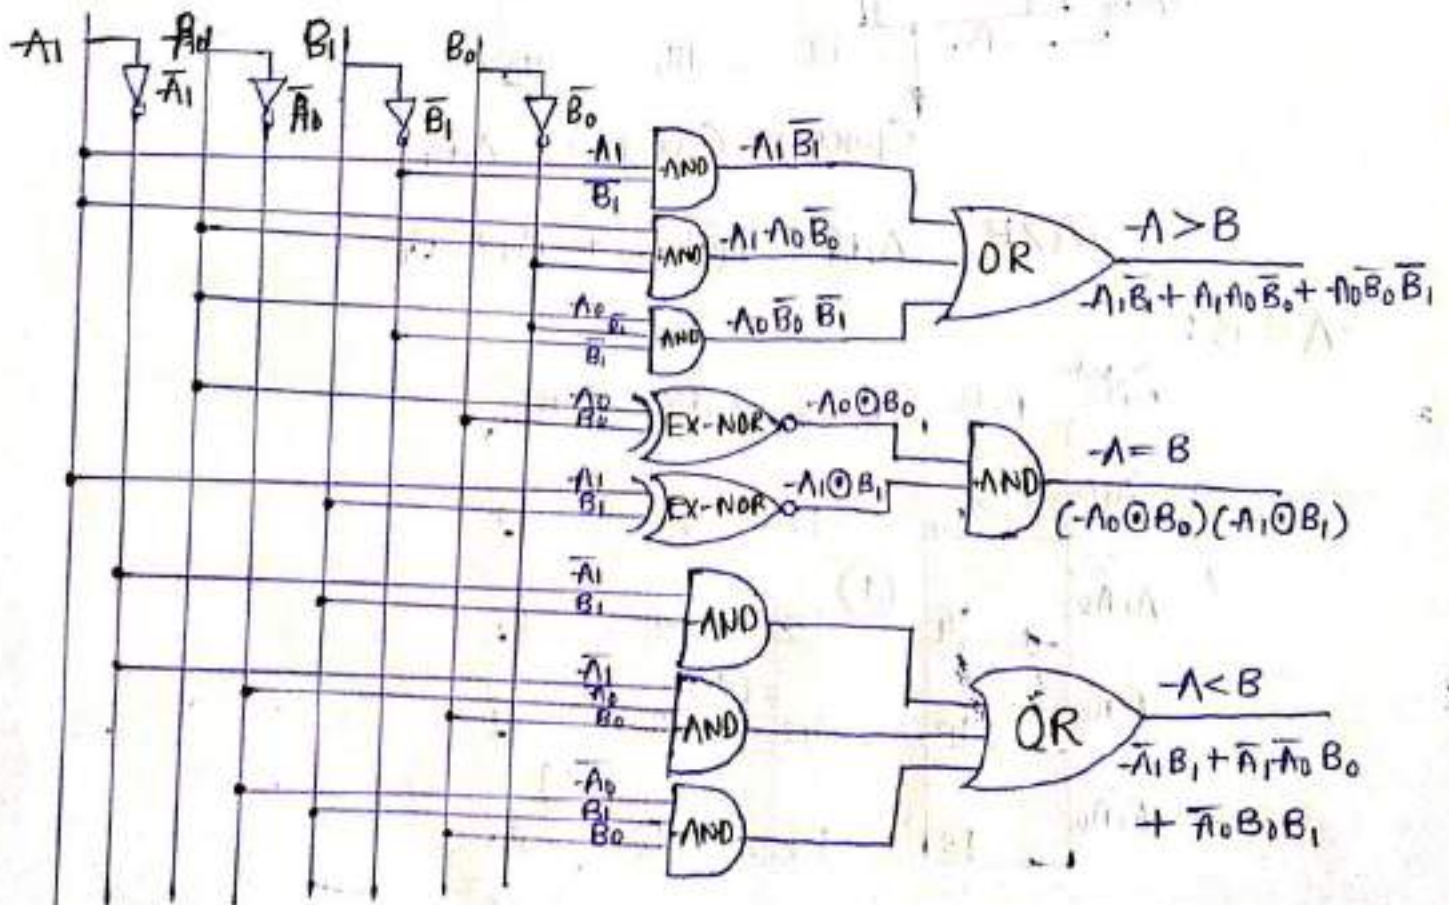 A1 A0 B1 B0
A̅1 A̅0 B̅1 B̅0
A1
B̅1
AND
A1 B̅1
AND
A1 A0 B̅0
A0
B̅1
AND
A0 B̅0 B̅1
OR
A > B
A1 B̅1 + A1 A0 B̅0 + A0 B̅0 B̅1
A0
B0
EX-NOR
A0 ⊙ B0
A1
B1
EX-NOR
A1 ⊙ B1
AND
A = B
(A0 ⊙ B0) (A1 ⊙ B1)
A̅1
B1
AND
A̅1
A̅0
B0
AND
A̅0
B1
B0
AND
OR
A < B
A̅1 B1 + A̅1 A̅0 B0
+ A̅0 B0 B1